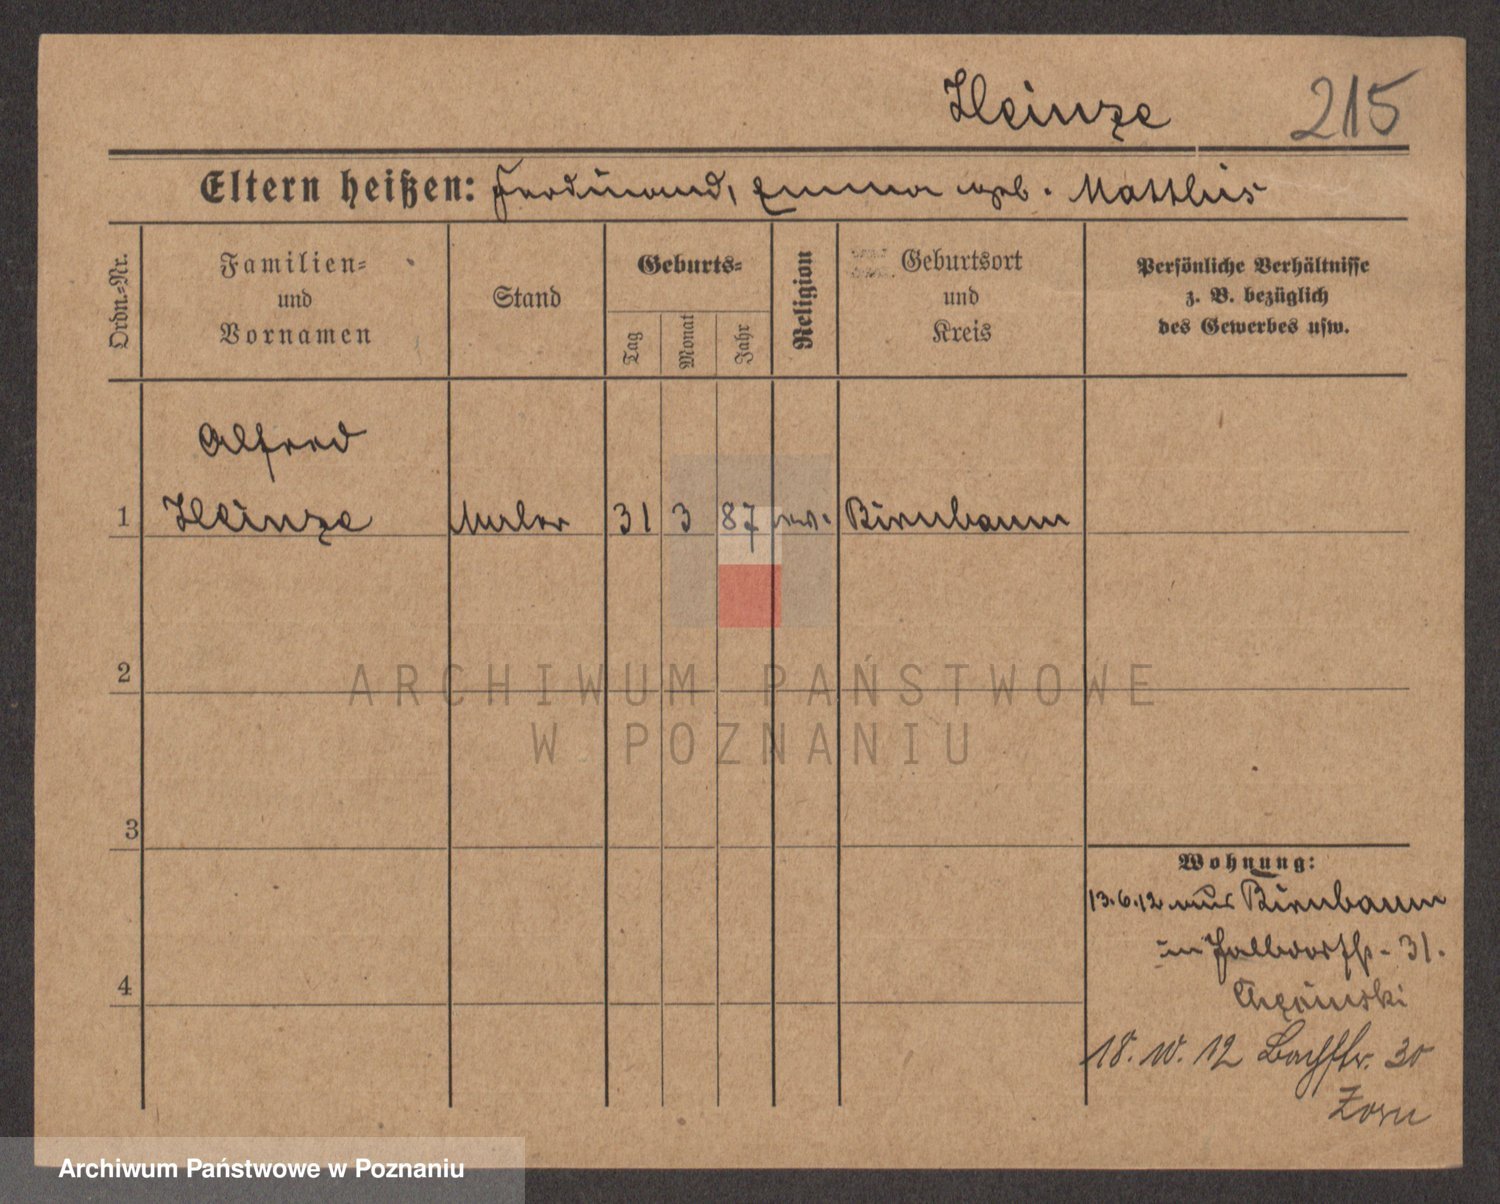 Heinze 215
Eltern heißen: Ferdinand, Emma geb. Matthes
Ordn.-Nr.
Familien-
und
Vornamen
Stand
Geburts-
Tag
Monat
Jahr
Religion
Geburtsort
und
Kreis
Persönliche Verhältnisse
z. B. bezüglich
des Gewerbes usw.
Alfred
1 Heinze Maler 31 3 87 ev. Birnbaum
2
ARCHIWUM PAŃSTWOWE
W POZNANIU
3
Wohnung:
13.6.12 aus Birnbaum
31.
4
18. 10. 12 Bachstr. 30
Zorn
Archiwum Państwowe w Poznaniu